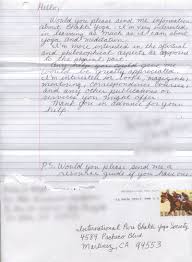 Hello,
Would you please send me information
about Bhakti Yoga. I'm very interested
in learning as much as I can about
yoga and meditation.
I'm more interested in the spiritual
and philosophical aspects as opposed
to the physical part.
Any help you could give me
would be greatly appreciated.
I'm interested in books, magazines,
mentoring, correspondence courses,
and any other publications or
services you might offer.
Thank you in advance for your
help.
P.S. Would you please send me a
resource guide if you have one.
International Pure Bhakti Yoga Society
4589 Pacheco Blvd
Martinez, CA 94553